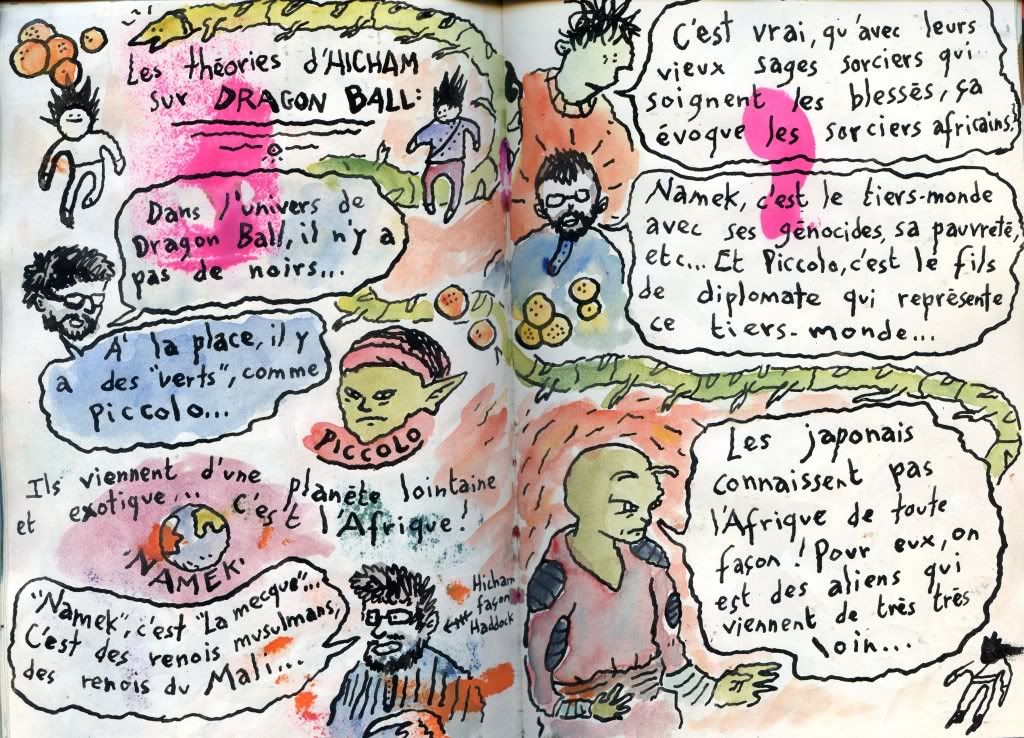 Les théories d'HICHAM
sur DRAGON BALL:
Dans l'univers de
Dragon Ball, il n'y a
pas de noirs...
A' la place, il y
a des "verts", comme
piccolo...
PICCOLO
Ils viennent d'une planète lointaine
et exotique... C'est l'Afrique!
"NAMEK"
"Namek", c'est "La mecque"...
C'est des renois musulmans,
des renois du Mali...
Hicham
façon
Haddock
C'est vrai, qu'avec leurs
vieux sages sorciers qui
soignent les blessés, ça
évoque les sorciers africains!
Namek, c'est le tiers-monde
avec ses génocides, sa pauvreté,
etc... Et Piccolo, c'est le fils
de diplomate qui représente
ce tiers-monde...
Les japonais
connaissent pas
l'Afrique de toute
façon! Pour eux, on
est des aliens qui
viennent de très très
loin...